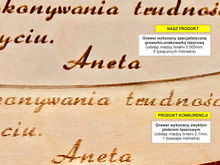 konywania trudność
yciu.
Aneta
NASZ PRODUKT
Grawer wykonany specjalistyczną
grawerko-znakowarką laserową
(odstęp między liniami 0.005mm,
5 tysięcznych milimetra)
konywania trudnośc
yciu.
Aneta
PRODUKT KONKURENCJI
Grawer wykonany zwykłym
ploterem laserowym
(odstęp między liniami 0,1mm,
1 dziesiąta milimetra)